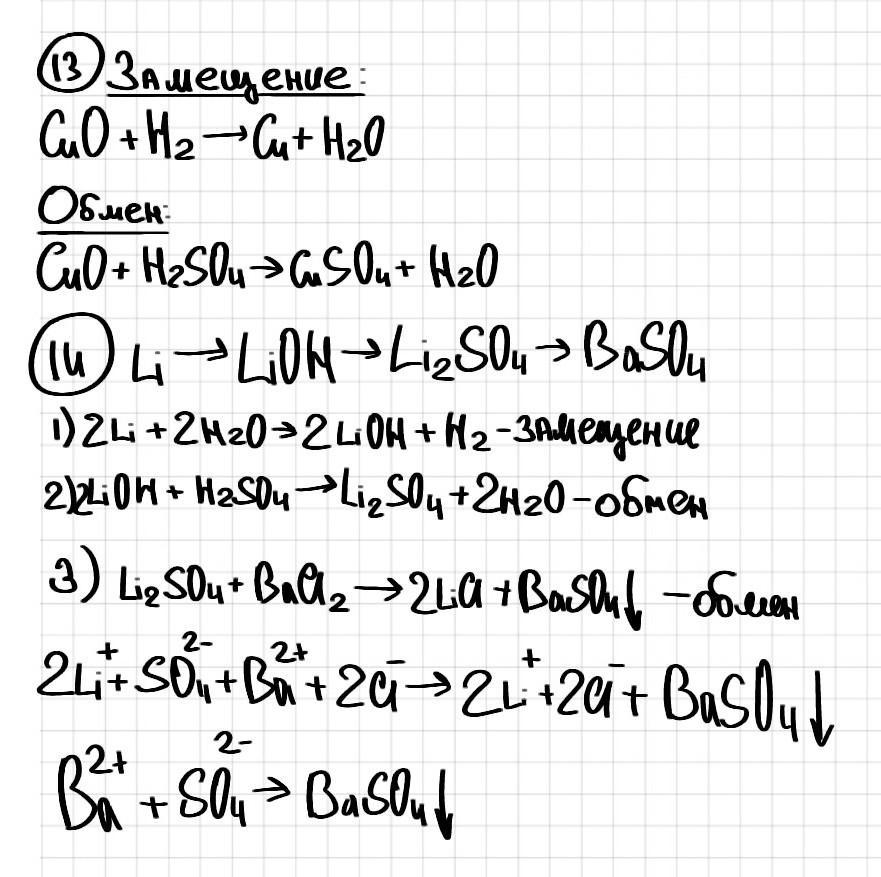 13 Замещение:
CuO + H₂ → Cu + H₂O
Обмен:
CuO + H₂SO₄ → CuSO₄ + H₂O
14 Li → LiOH → Li₂SO₄ → BaSO₄
1) 2Li + 2H₂O → 2LiOH + H₂ - замещение
2) 2LiOH + H₂SO₄ → Li₂SO₄ + 2H₂O - обмен
3) Li₂SO₄ + BaCl₂ → 2LiCl + BaSO₄↓ - обмен
2Li⁺ + SO₄²⁻ + Ba²⁺ + 2Cl⁻ → 2Li⁺ + 2Cl⁻ + BaSO₄↓
Ba²⁺ + SO₄²⁻ → BaSO₄↓